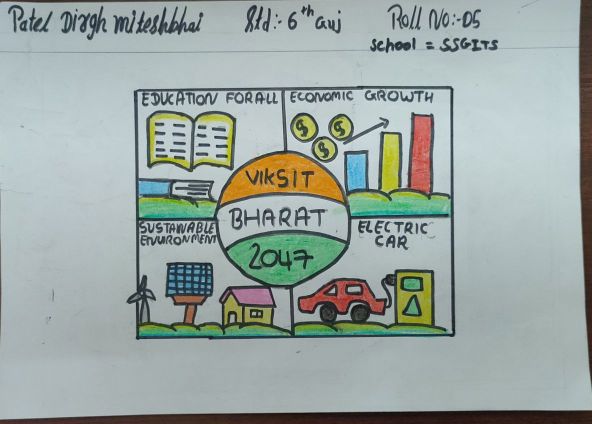 Patel Dirgh miteshbhai Std:- 6th guj Roll No:-05
School = SSGITS
EDUCATION FOR ALL
ECONOMIC GROWTH
$ $
$
VIKSIT
BHARAT
2047
SUSTAINABLE
ENVIRONMENT
ELECTRIC
CAR